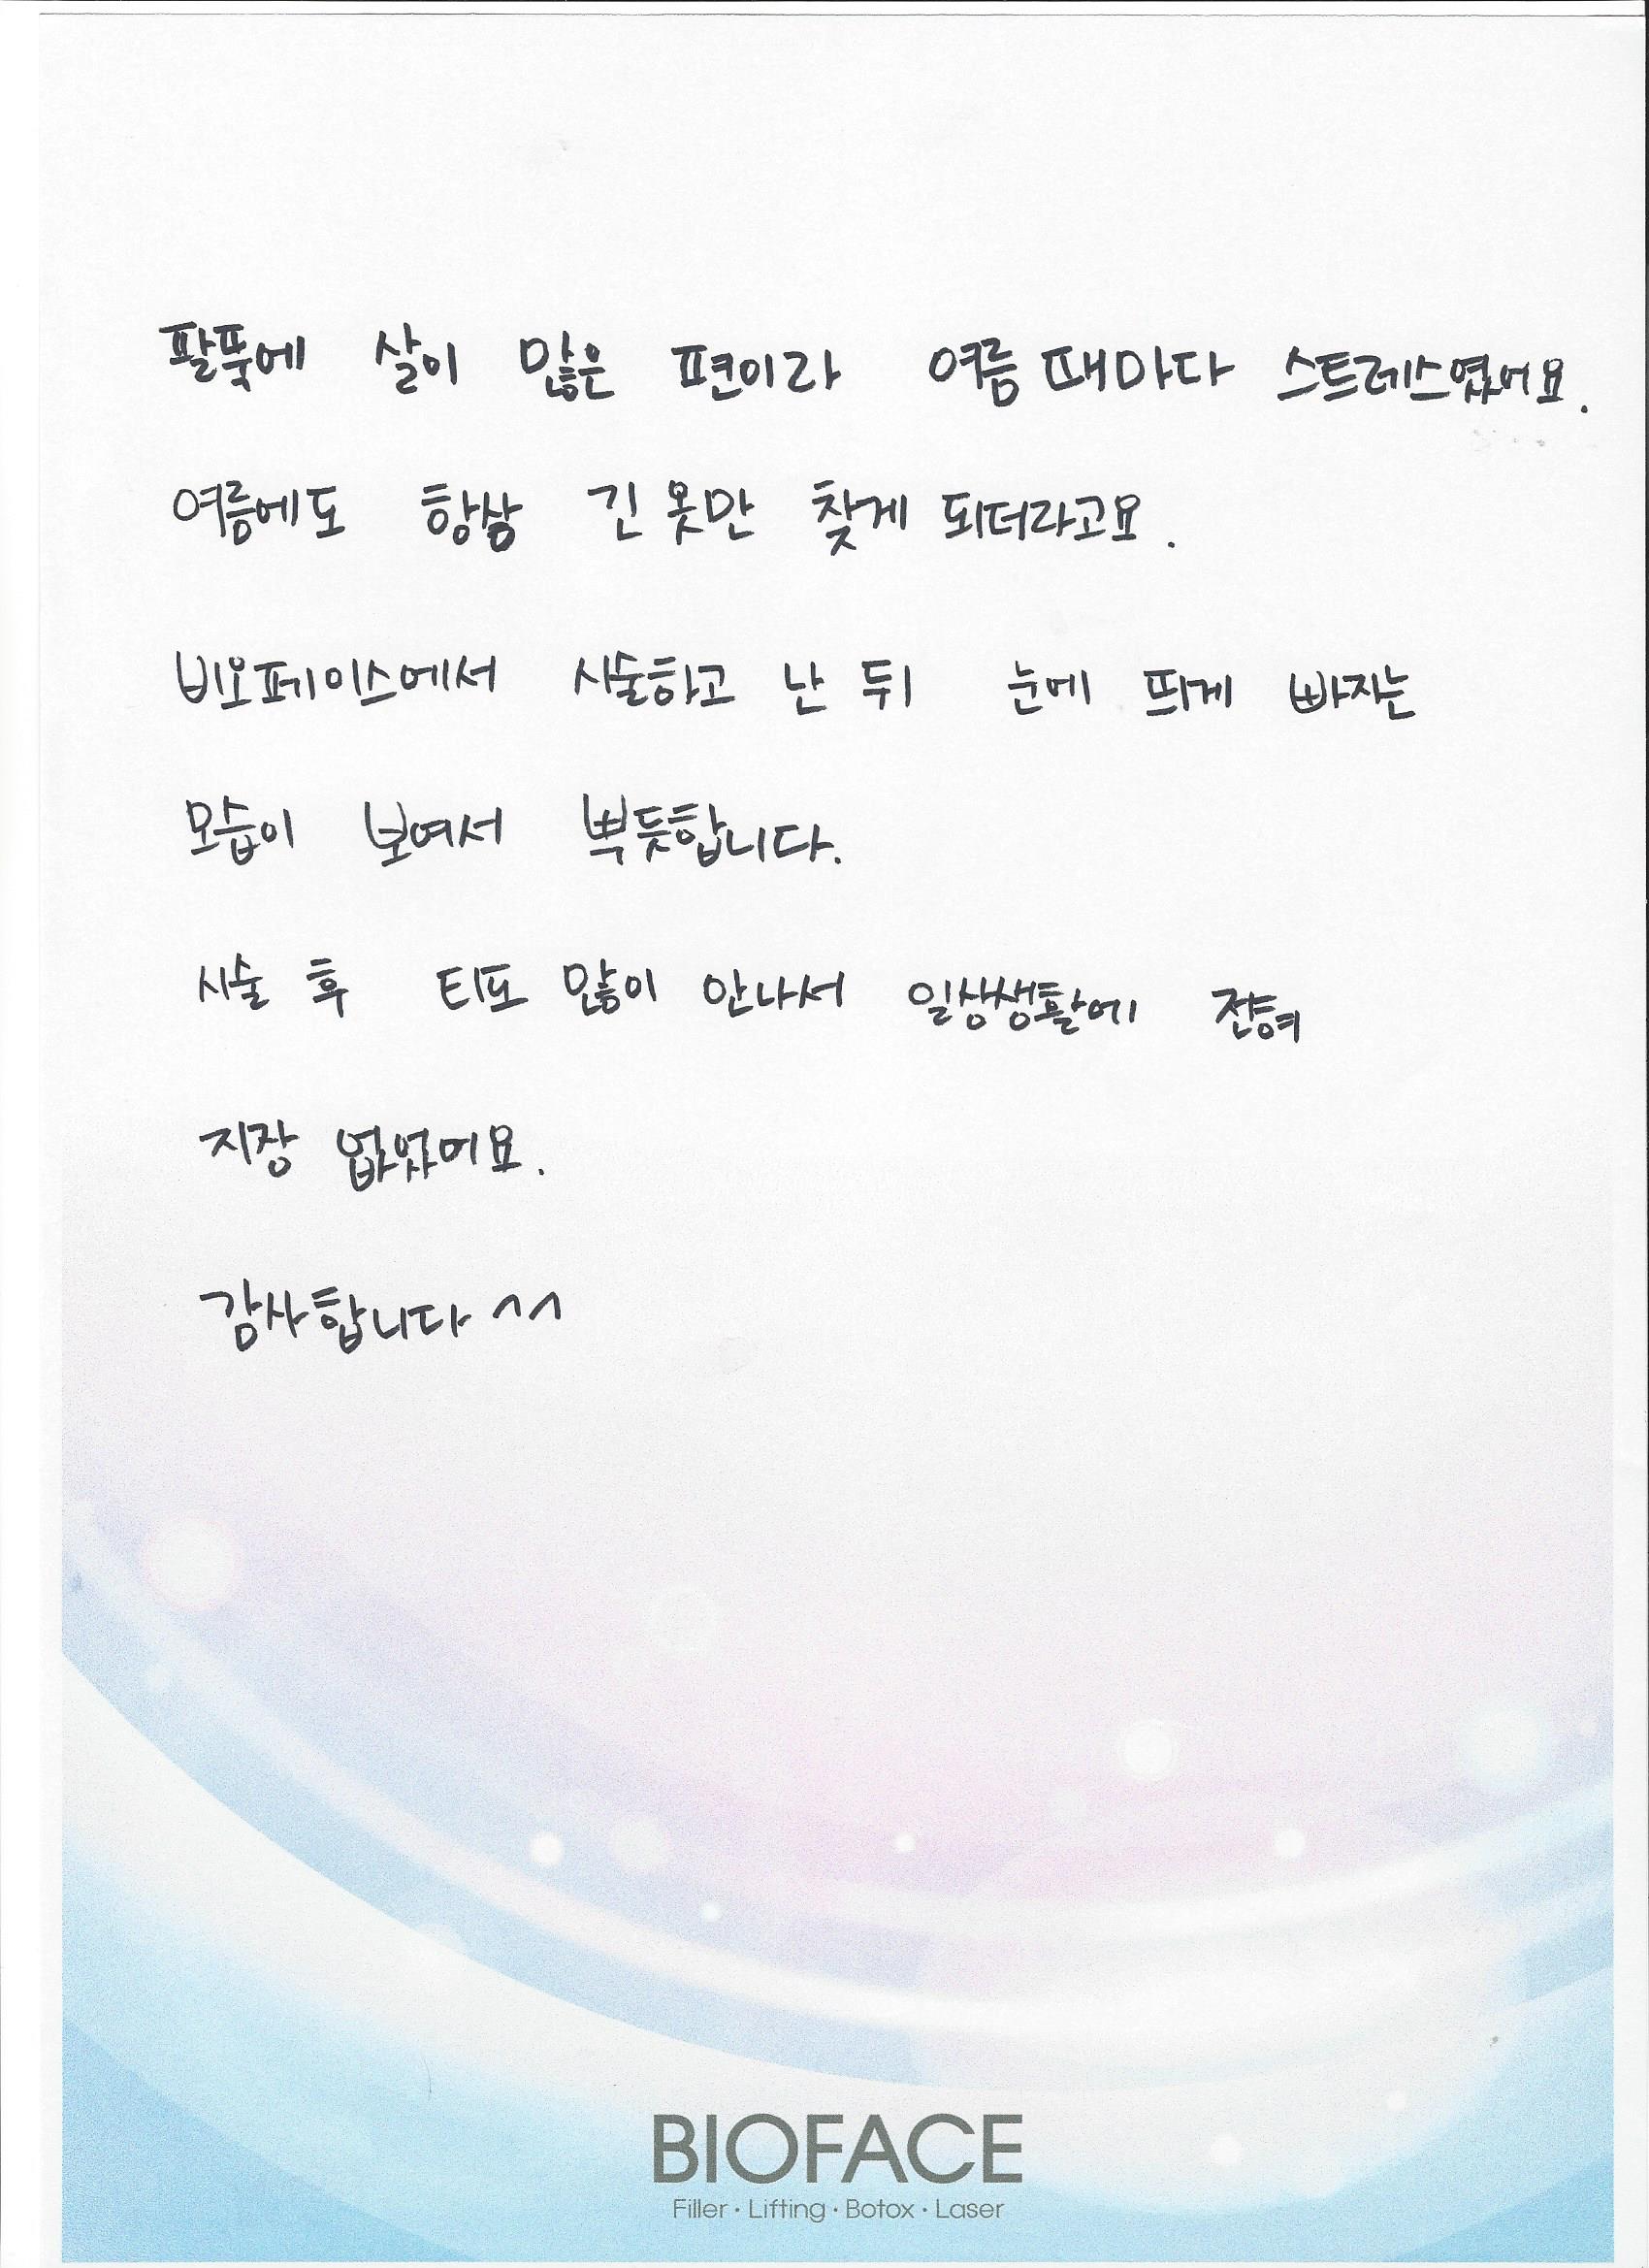 팔뚝에 살이 많은 편이라 여름 때마다 스트레스였어요.
여름에도 항상 긴 옷만 찾게 되더라고요.
비오페이스에서 시술하고 난 뒤 눈에 띄게 빠지는
모습이 보여서 뿌듯합니다.
시술 후 티도 많이 안나서 일상생활에 전혀
지장 없었어요.
감사합니다 ^^
BIOFACE
Filler · Lifting · Botox · Laser